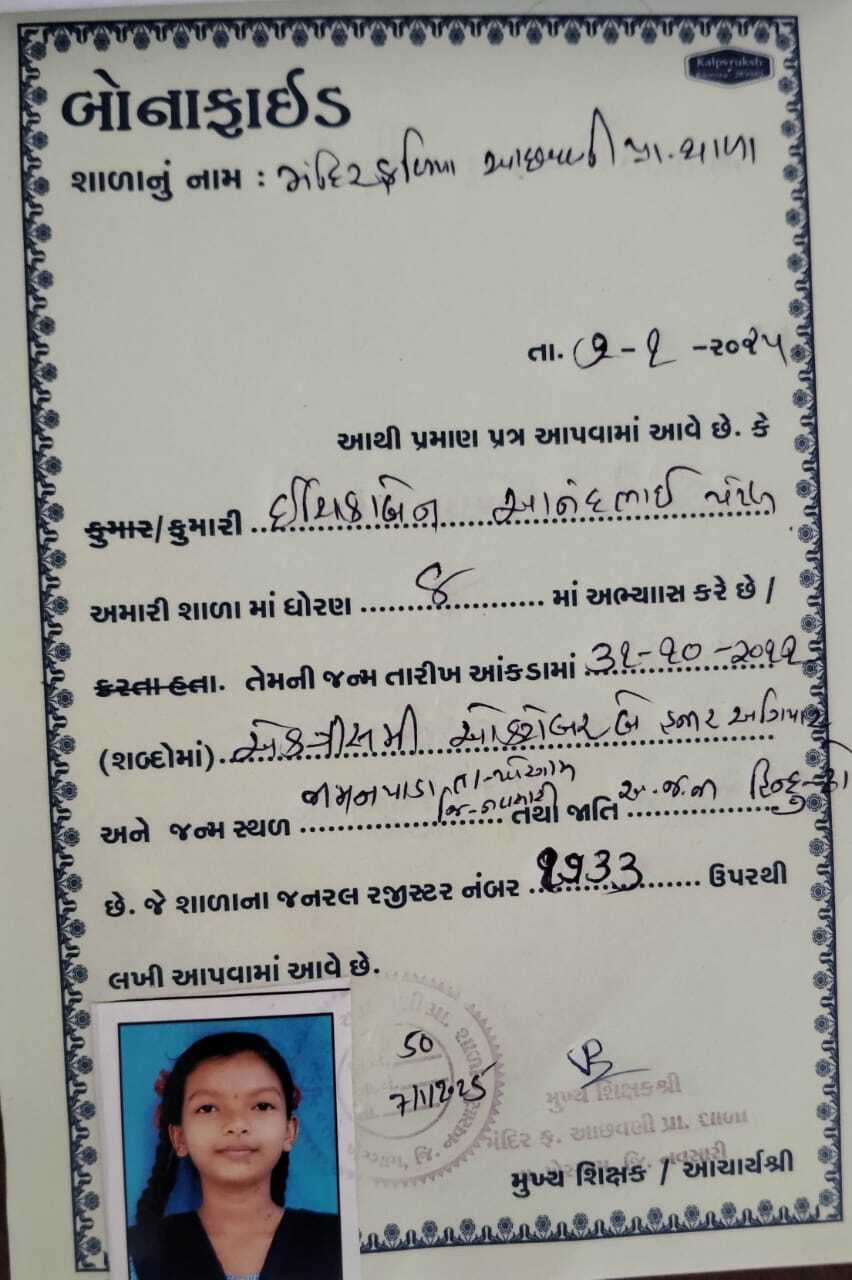 Kalpvruksh
બોનાફાઈડ
શાળાનું નામ : મંદિર ફળિયા આછવણી પ્રા. શાળા
તા. ૭-૧-૨૦૨૫
આથી પ્રમાણ પત્ર આપવામાં આવે છે. કે
કુમાર/કુમારી .. આનંદભાઈ
અમારી શાળા માં ધોરણ ....૪.... માં અભ્યાાસ કરે છે /
કરતા હતા. તેમની જન્મ તારીખ આંકડામાં ૩૧-૧૦-૨૦૧૧
(શબ્દોમાં). એકત્રીસમી ઓક્ટોબર બે હજાર અગિયાર
જામનપાડા તા-ખેરગામ
જિ-નવસારી
અને જન્મ સ્થળ .......... તથા જાતિ અ.જ.જા હિન્દુ-
છે. જે શાળાના જનરલ રજીસ્ટર નંબર .૧૭૩૩. ઉપરથી
લખી આપવામાં આવે છે.
50
7/1/2025
મુખ્ય શિક્ષકશ્રી
મંદિર ફ. આછવણી પ્રા. શાળા
જિ. નવસારી
મુખ્ય શિક્ષક / આચાર્યશ્રી